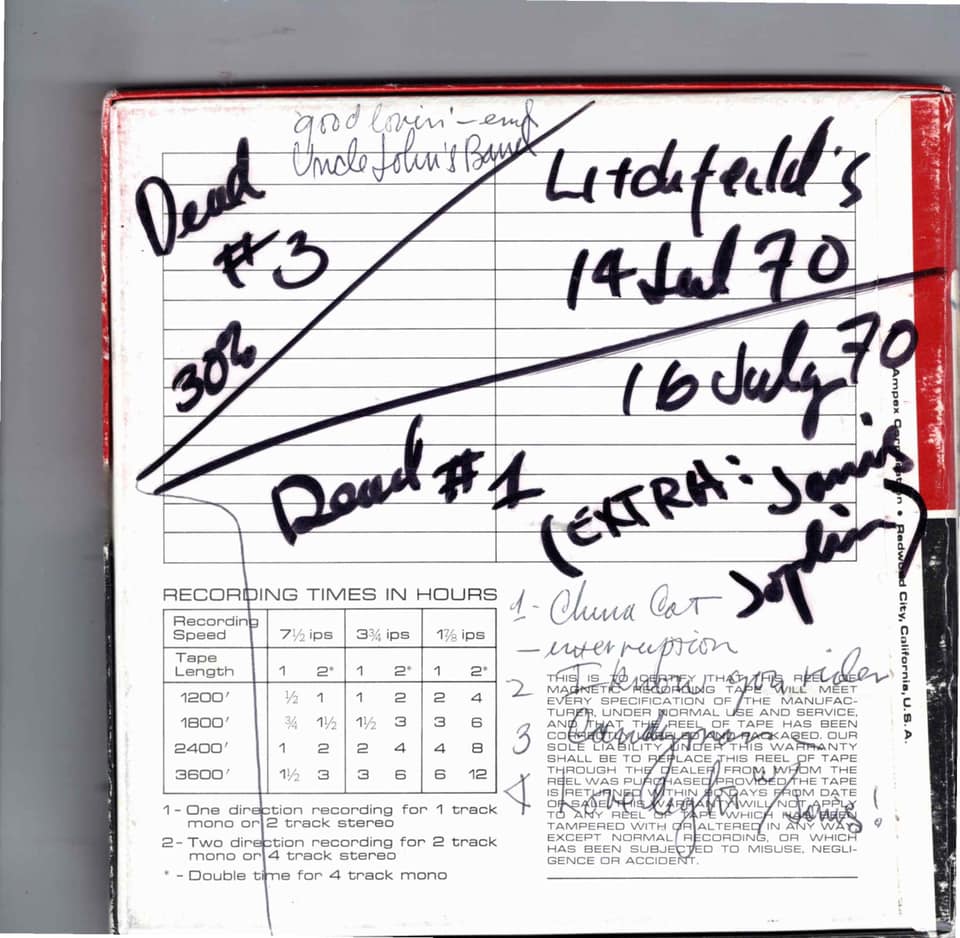 good lovin' - end
Uncle John's Band
Dead
#3
30%
Litchfield's
14 Jul 70
16 July 70
Dead #1
(EXTRA: Janis
Joplin)
Ampex Corporation • Redwood City, California, U.S.A.
RECORDING TIMES IN HOURS
Recording Speed 7½ ips 3¾ ips 1⅞ ips
Tape Length 1 2* 1 2* 1 2*
1200' ½ 1 1 2 2 4
1800' ¾ 1½ 1½ 3 3 6
2400' 1 2 2 4 4 8
3600' 1½ 3 3 6 6 12
1 - One direction recording for 1 track
mono or 2 track stereo
2 - Two direction recording for 2 track
mono or 4 track stereo
* - Double time for 4 track mono
1 - China Cat
- interruption
2 I know you rider
3 Candyman -
4 Lovelight w/Janis!
THIS IS TO CERTIFY THAT THIS REEL OF
MAGNETIC RECORDING TAPE WILL MEET
EVERY SPECIFICATION OF THE MANUFAC-
TURER, UNDER NORMAL USE AND SERVICE,
AND THAT THE REEL OF TAPE HAS BEEN
CORRECTLY LABELED AND PACKAGED. OUR
SOLE LIABILITY UNDER THIS WARRANTY
SHALL BE TO REPLACE THIS REEL OF TAPE
THROUGH THE DEALER FROM WHOM THE
REEL WAS PURCHASED PROVIDED THE TAPE
IS RETURNED WITHIN 90 DAYS FROM DATE
OF SALE. THIS WARRANTY WILL NOT APPLY
TO ANY REEL OF TAPE WHICH HAS BEEN
TAMPERED WITH OR ALTERED IN ANY WAY
EXCEPT NORMAL RECORDING, OR WHICH
HAS BEEN SUBJECTED TO MISUSE, NEGLI-
GENCE OR ACCIDENT.